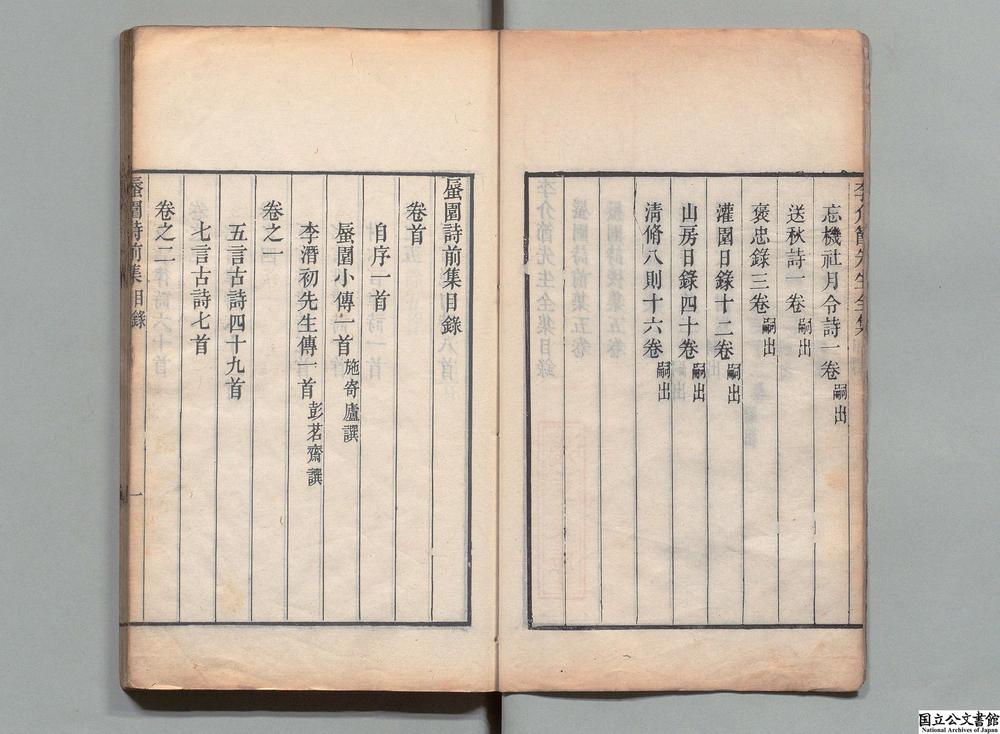 忘機社月令詩一卷嗣出
送秋詩一卷嗣出
褒忠錄三卷嗣出
灌園日錄十二卷嗣出
山房日錄四十卷嗣出
淸脩八則十六卷嗣出
蜃園詩前集目錄
卷首
自序一首
蜃園小傳一首施寄廬譔
李潛初先生傳一首彭茗齋譔
卷之一
五言古詩四十九首
七言古詩七首
卷之二
蜃園詩前集目錄
一
国立公文書館
National Archives of Japan